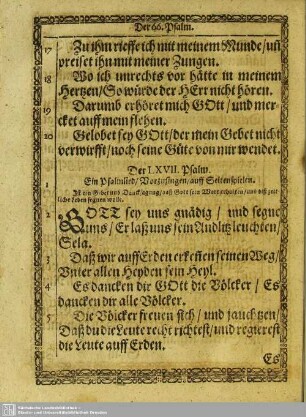 Der 66. Psalm.
17 Zu ihm rieffe ich mit meinem Munde/ uñ
preiset ihn mit meiner Zungen.
18 Wo ich unrechts vor hätte in meinem
Hertzen/ So würde der HErr nicht hören.
19 Darumb erhöret mich GOtt/ und mer-
cket auff mein flehen.
20 Gelobet sey GOtt/ der mein Gebet nicht
verwirfft/ noch seine Güte von mir wendet.
Der LXVII. Psalm.
1 Ein Psalmlied/ Vorzusingen/ auff Seitenspielen.
2 GOTT sey uns gnädig/ und segne
uns/ Er laß uns sein Andlitz leuchten/
Sela.
3 Daß wir auff Erden erkeñen seinen Weg/
Unter allen Heyden sein Heyl.
4 Es dancken dir GOtt die Völcker/ Es
dancken dir alle Völcker.
5 Die Völcker freuen sich/ und jauchtzen/
Daß du die Leute recht richtest/ und regierest
die Leute auff Erden.
Es